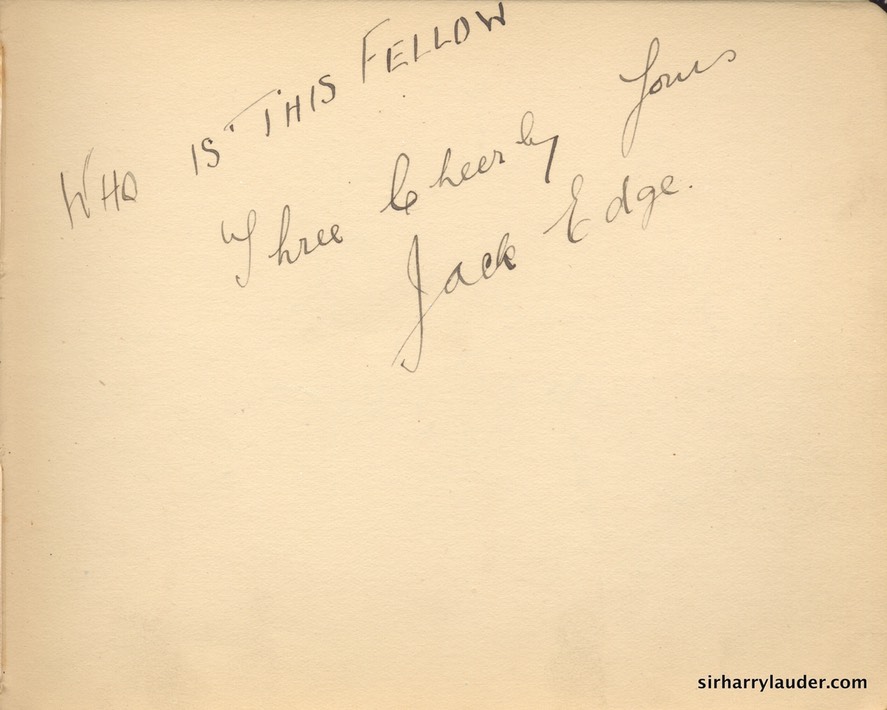 WHO IS THIS FELLOW
Three Cheerly Yours
Jack Edge.
sirharrylauder.com